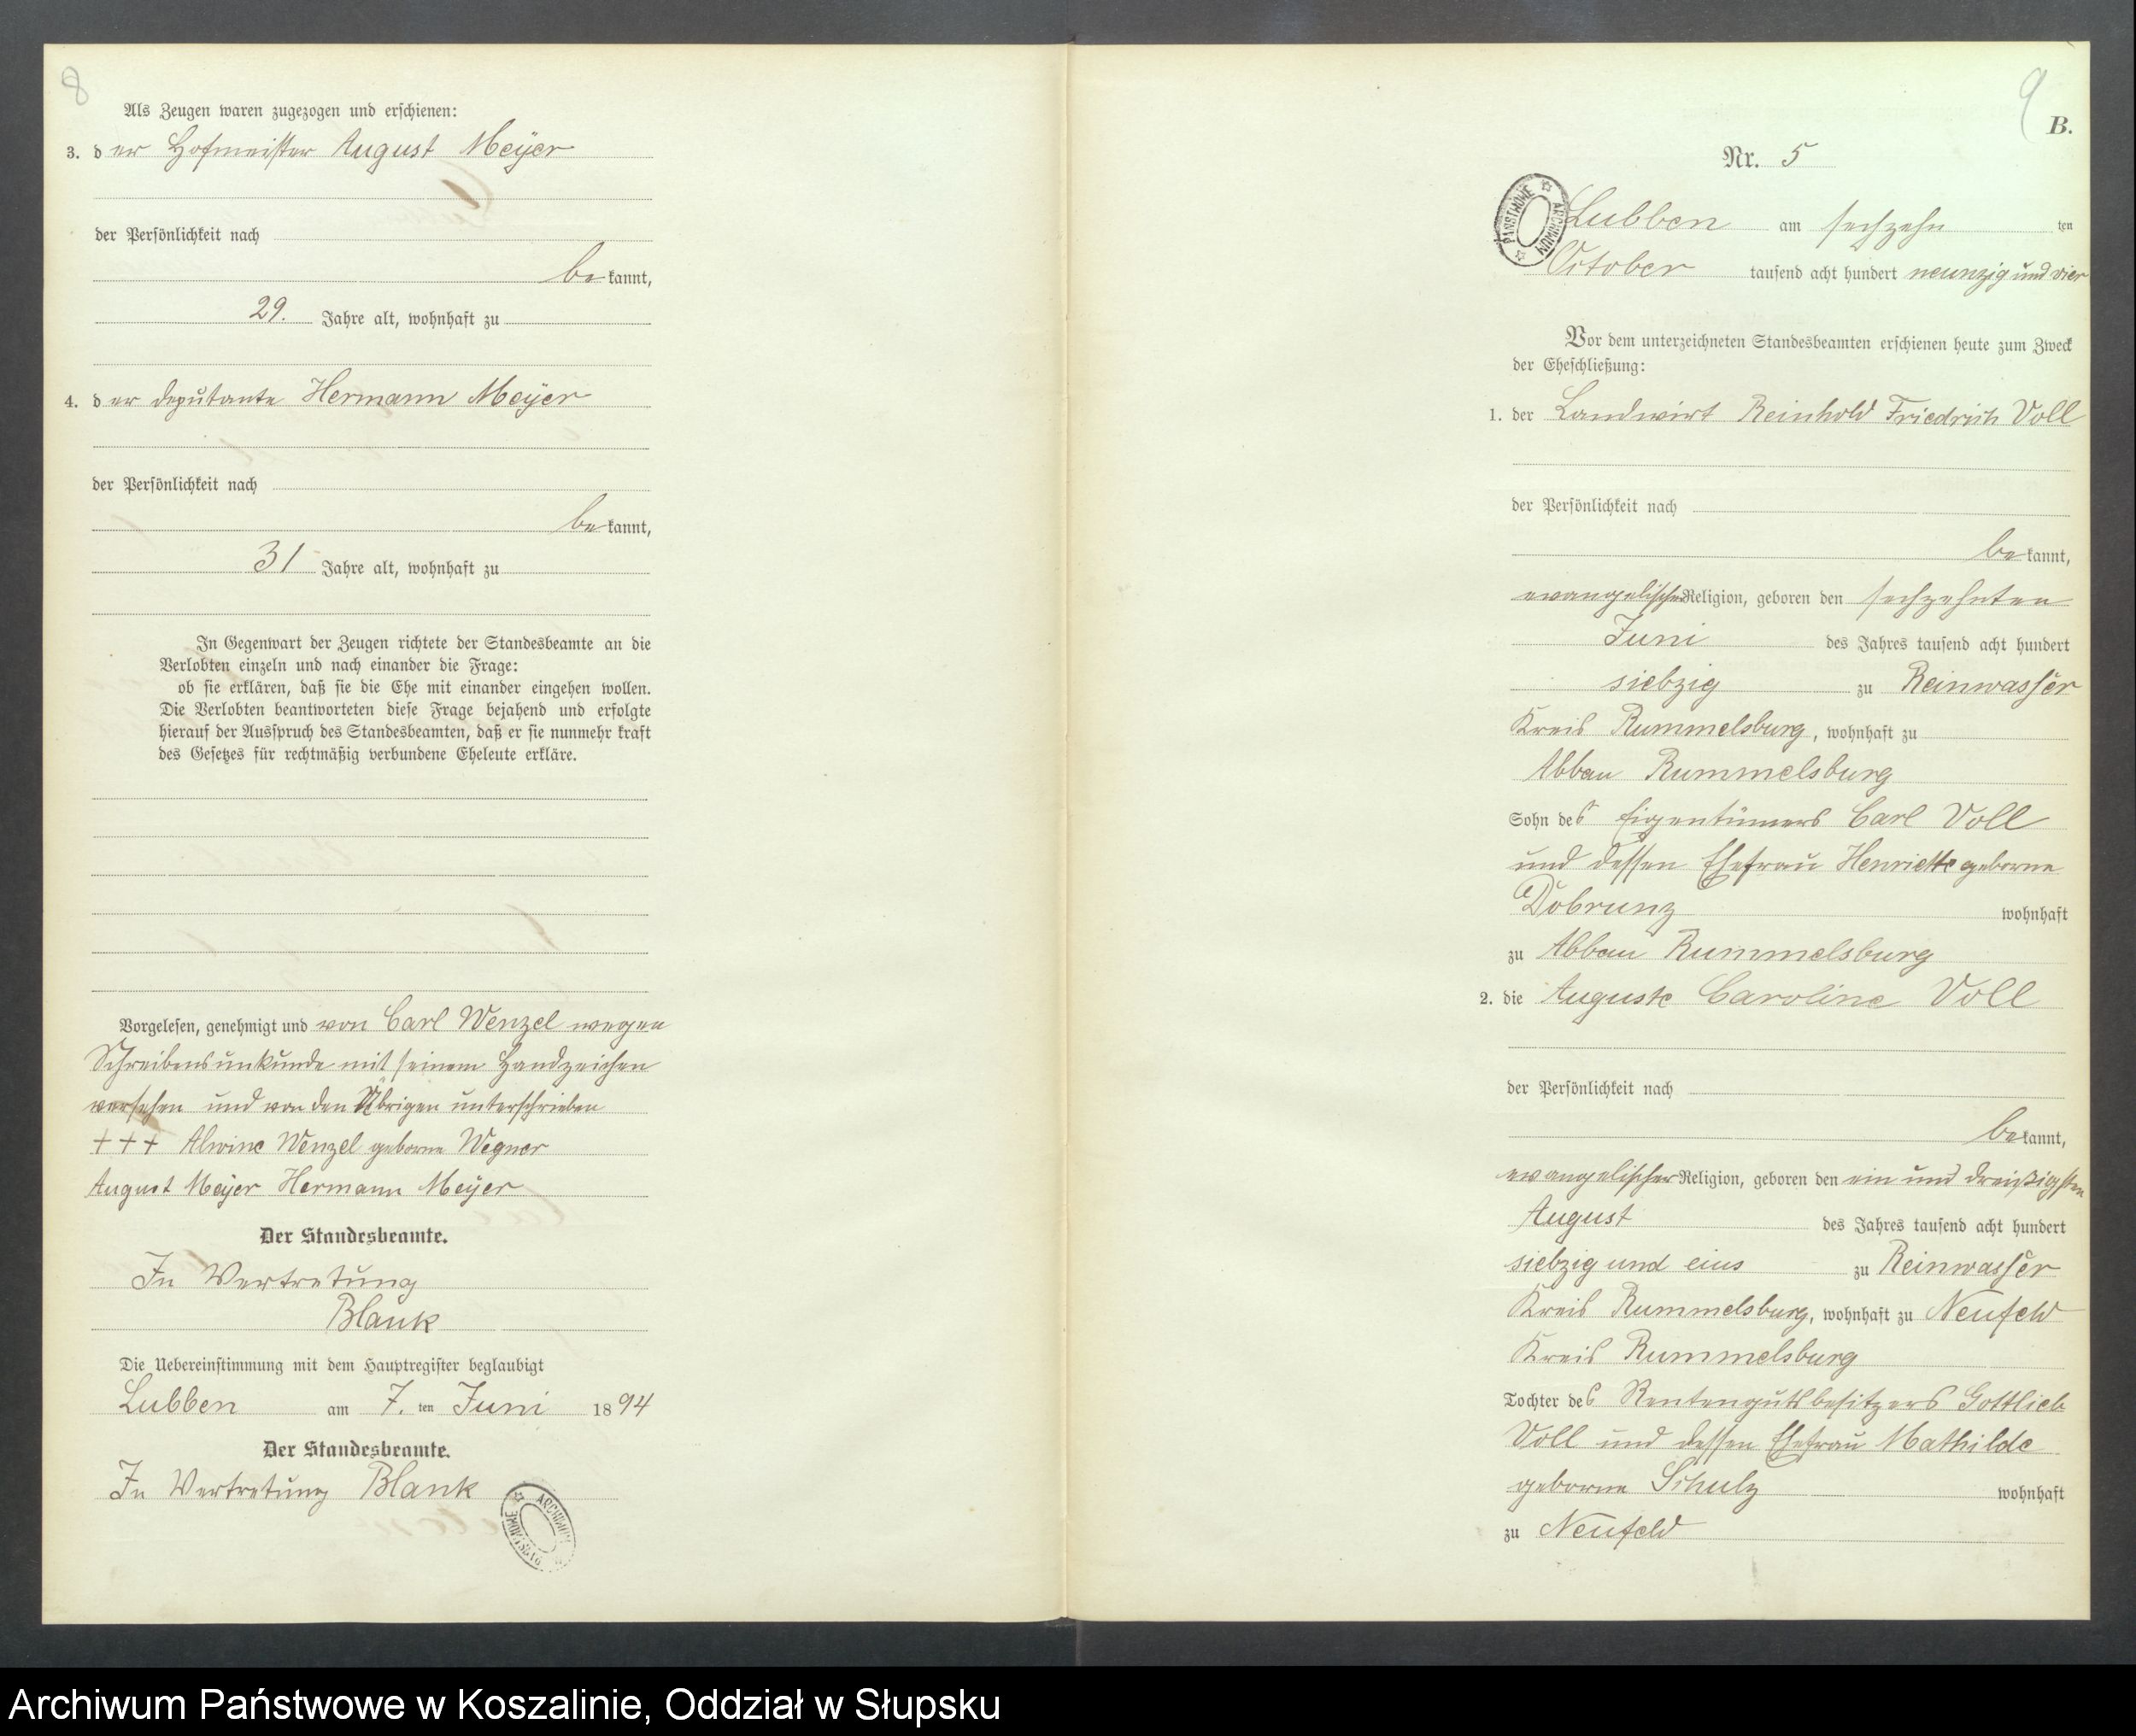 8
Als Zeugen waren zugezogen und erschienen:
3. der Hofmeister August Meÿer
der Persönlichkeit nach
bekannt,
29. Jahre alt, wohnhaft zu
4. der deputante Hermann Meÿer
der Persönlichkeit nach
bekannt,
31 Jahre alt, wohnhaft zu
In Gegenwart der Zeugen richtete der Standesbeamte an die
Verlobten einzeln und nach einander die Frage:
ob sie erklären, daß sie die Ehe mit einander eingehen wollen.
Die Verlobten beantworteten diese Frage bejahend und erfolgte
hierauf der Ausspruch des Standesbeamten, daß er sie nunmehr kraft
des Gesetzes für rechtmäßig verbundene Eheleute erkläre.
Vorgelesen, genehmigt und von Carl Wenzel wegen
Schreibensunkunde mit seinem Handzeichen
versehen und von den Übrigen unterschrieben
+++ Alwine Wenzel geborne Wegner
August Meÿer Hermann Meÿer
Der Standesbeamte.
In Vertretung
Blank
Die Uebereinstimmung mit dem Hauptregister beglaubigt
Lubben am 7. ten Juni 1894
Der Standesbeamte.
In Vertretung Blank
ARCHIWUM PAŃSTWOWE
9
B.
Nr. 5
ARCHIWUM PAŃSTWOWE
Lubben am sechzehn ten
October tausend acht hundert neunzig und vier
Vor dem unterzeichneten Standesbeamten erschienen heute zum Zweck
der Eheschließung:
1. der Landwirt Reinhold Friedrich Voll
der Persönlichkeit nach
bekannt,
evangelischer Religion, geboren den sechzehnten
Juni des Jahres tausend acht hundert
siebzig zu Reinwasser
Kreis Rummelsburg, wohnhaft zu
Abbau Rummelsburg
Sohn des Eigentümers Carl Voll
und dessen Ehefrau Henriette geborne
Dobrunz wohnhaft
zu Abbau Rummelsburg
2. die Auguste Caroline Voll
der Persönlichkeit nach
bekannt,
evangelischer Religion, geboren den ein und dreißigsten
August des Jahres tausend acht hundert
siebzig und eins zu Reinwasser
Kreis Rummelsburg, wohnhaft zu Neufeld
Kreis Rummelsburg
Tochter des Rentengutsbesitzers Gottlieb
Voll und dessen Ehefrau Mathilde
geborne Schulz wohnhaft
zu Neufeld
Archiwum Państwowe w Koszalinie, Oddział w Słupsku